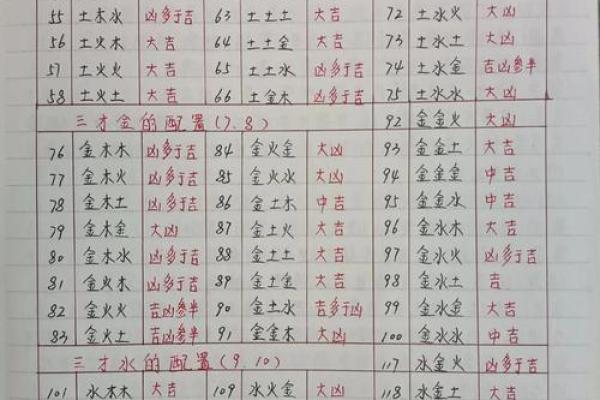 55 土木水 凶多于吉 63 土土土 大吉 72 土水火 大凶
56 土火木 大吉 64 土土金 大吉 73 土水土 大凶
57 土火火 大吉 65 土土水 凶多于吉 74 土水金 吉凶参半
58 土火土 大吉 66 土金木 凶多于吉 75 土水水 大凶
三才金的配置(7.8) 92 金金火 大凶
76 金木木 凶多于吉 84 金火金 大凶 93 金金土 大吉
77 金木火 凶多于吉 85 金火水 大凶 94 金金金 中吉
78 金木土 凶多于吉 86 金土木 中吉 95 金金水 中吉
79 金木金 大凶 87 金土火 大吉 96 金水木 大吉
80 金木水 凶多于吉 88 金土土 大吉 97 金水火 凶多于吉
81 金火木 凶多于吉 89 金土金 大吉 98 金水土 吉
82 金火火 吉凶参半 90 金土水 吉多于凶 99 金水金 大吉
83 金火土 吉凶参半 91 金金木 大凶 100 金水水 中吉
三才水的配置(9.10) 117 水金火 凶多于吉
101 水木木 大吉 109 水火金 大凶 118 水金土 大吉